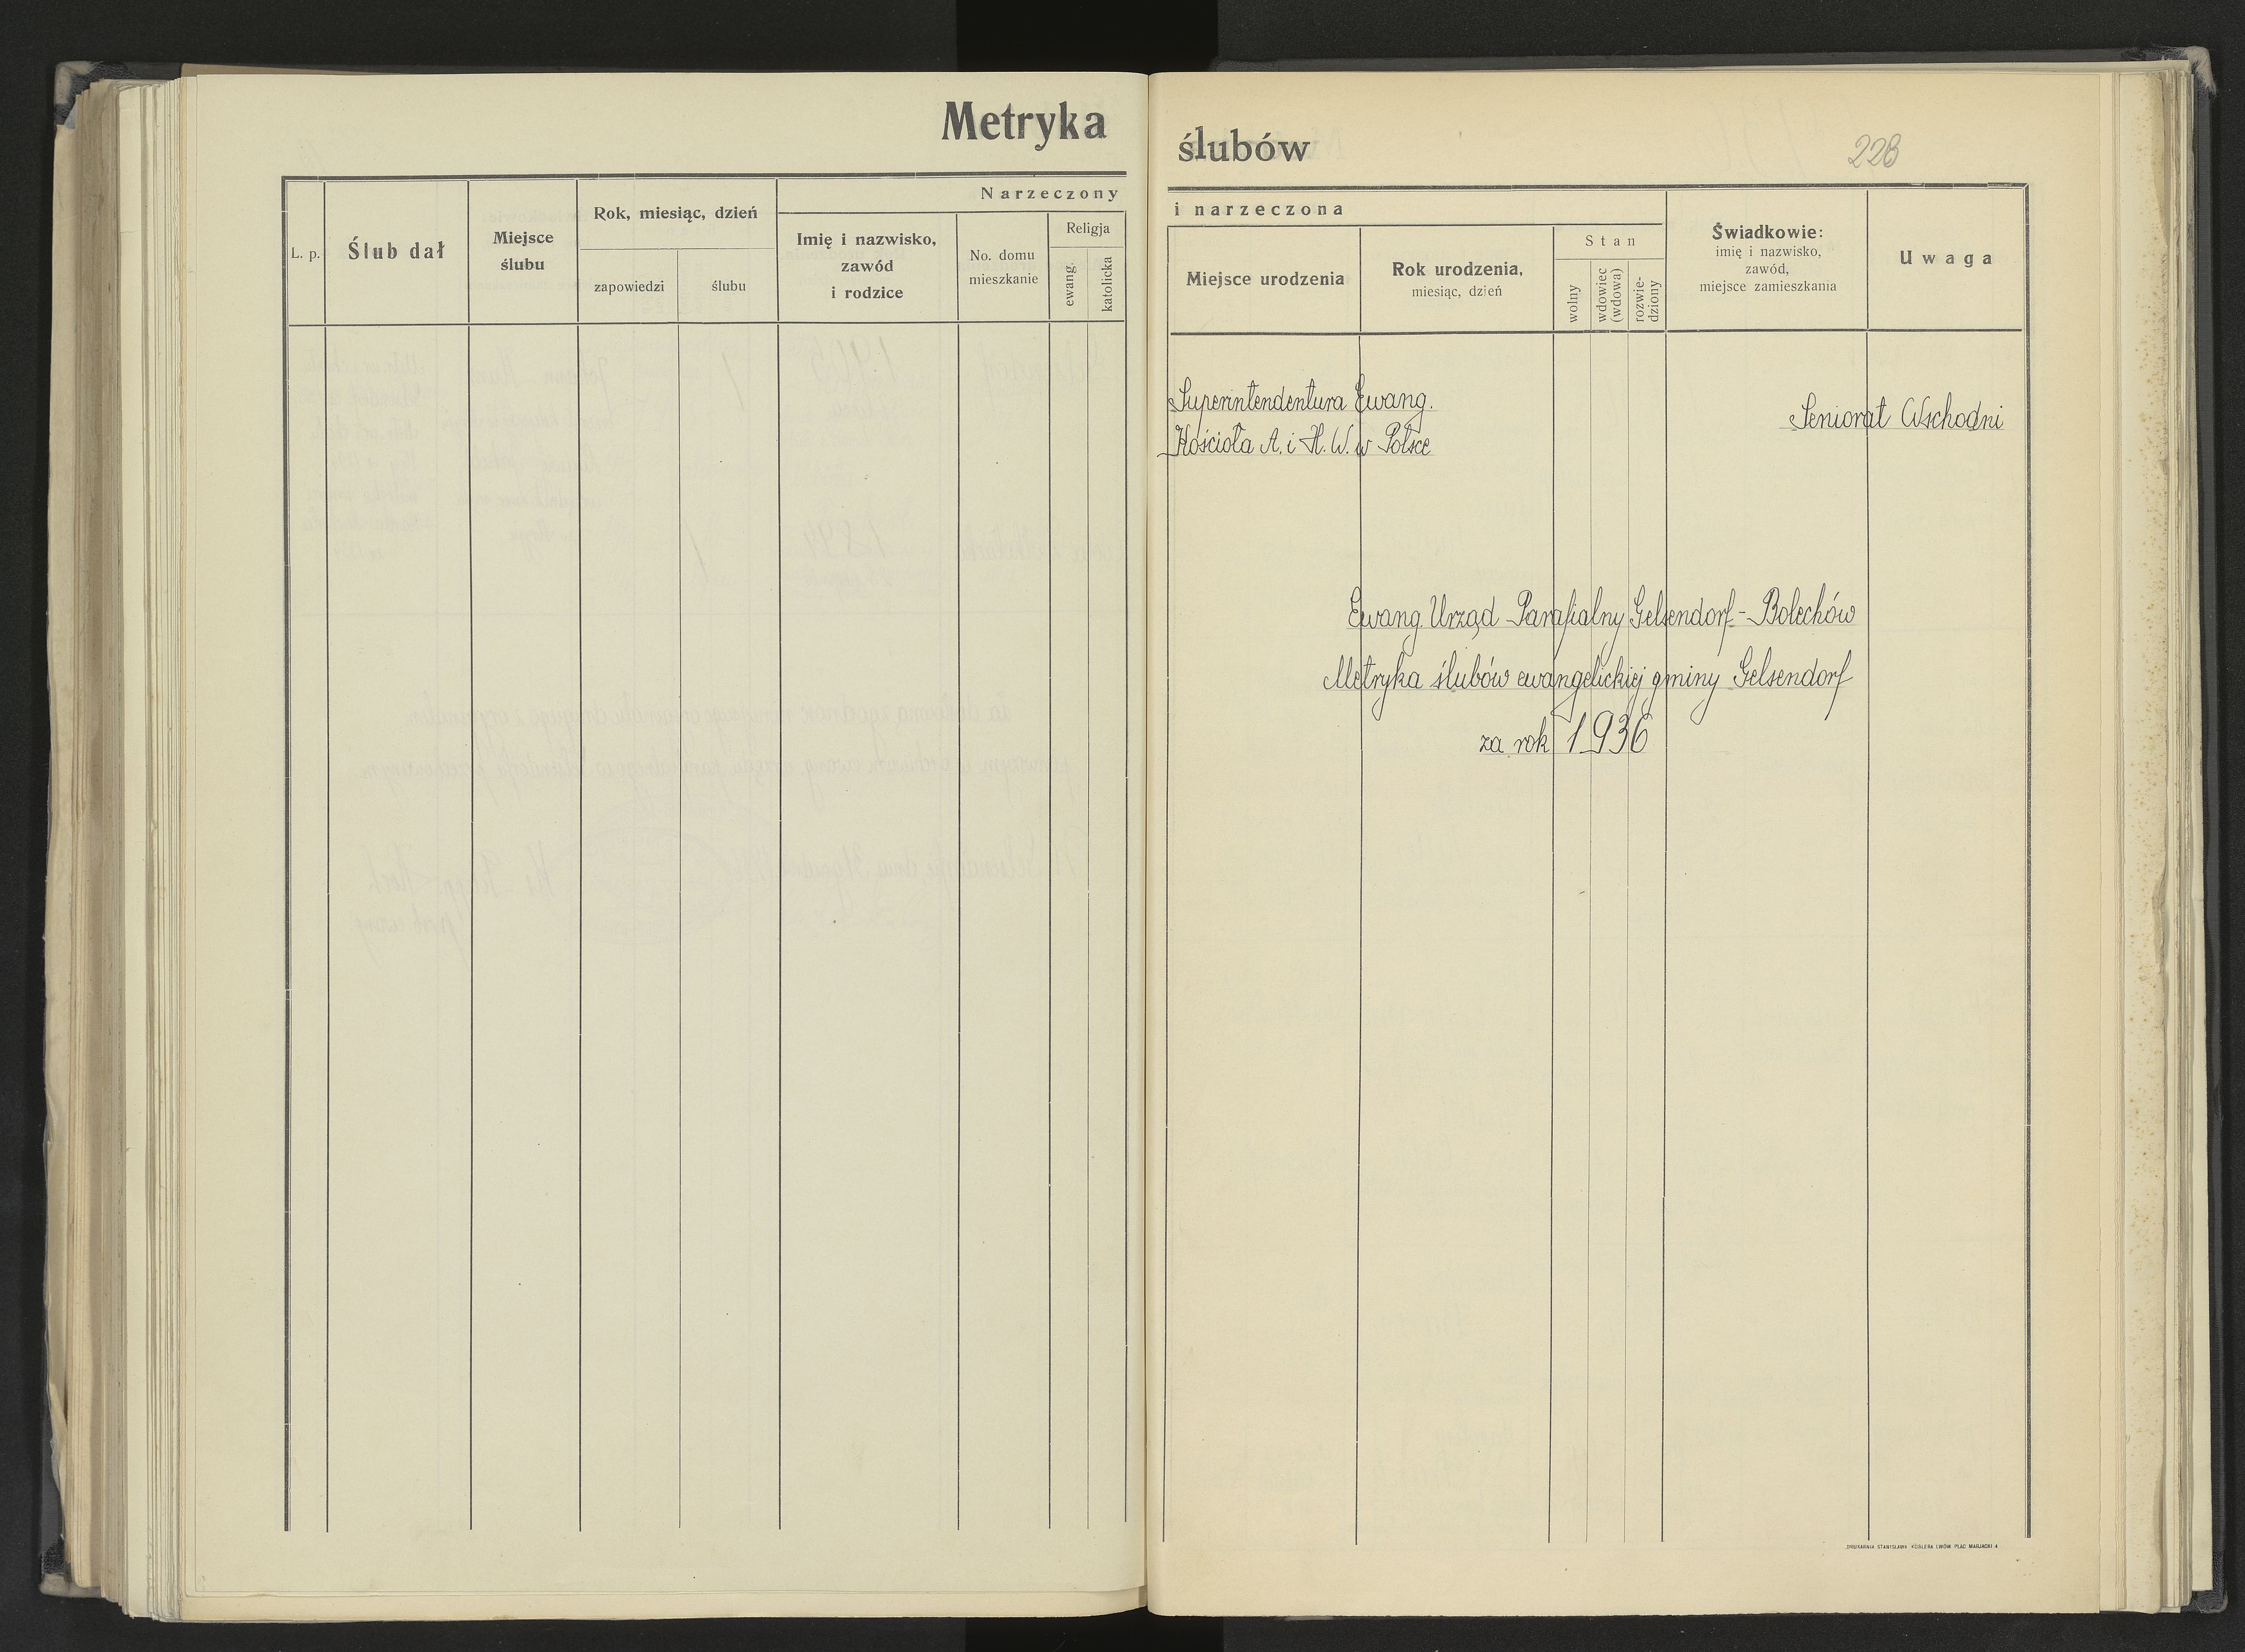 Metryka
Narzeczony
L. p.
Ślub dał
Miejsce
ślubu
Rok, miesiąc, dzień
zapowiedzi
ślubu
Imię i nazwisko,
zawód
i rodzice
No. domu
mieszkanie
Religja
ewang.
katolicka
ślubów
228
i narzeczona
Miejsce urodzenia
Rok urodzenia,
miesiąc, dzień
Stan
wolny
wdowiec
(wdowa)
rozwie-
dziony
Świadkowie:
imię i nazwisko,
zawód,
miejsce zamieszkania
Uwaga
Superintendentura Ewang.
Kościoła A. i H. W. w Polsce
Seniorat Wschodni
Ewang. Urząd Parafialny Gelsendorf-Bolechów
Metryka ślubów ewangelickiej gminy Gelsendorf
za rok 1936
DRUKARNIA STANISŁAWA KOSLERA LWÓW PLAC MARJACKI 4